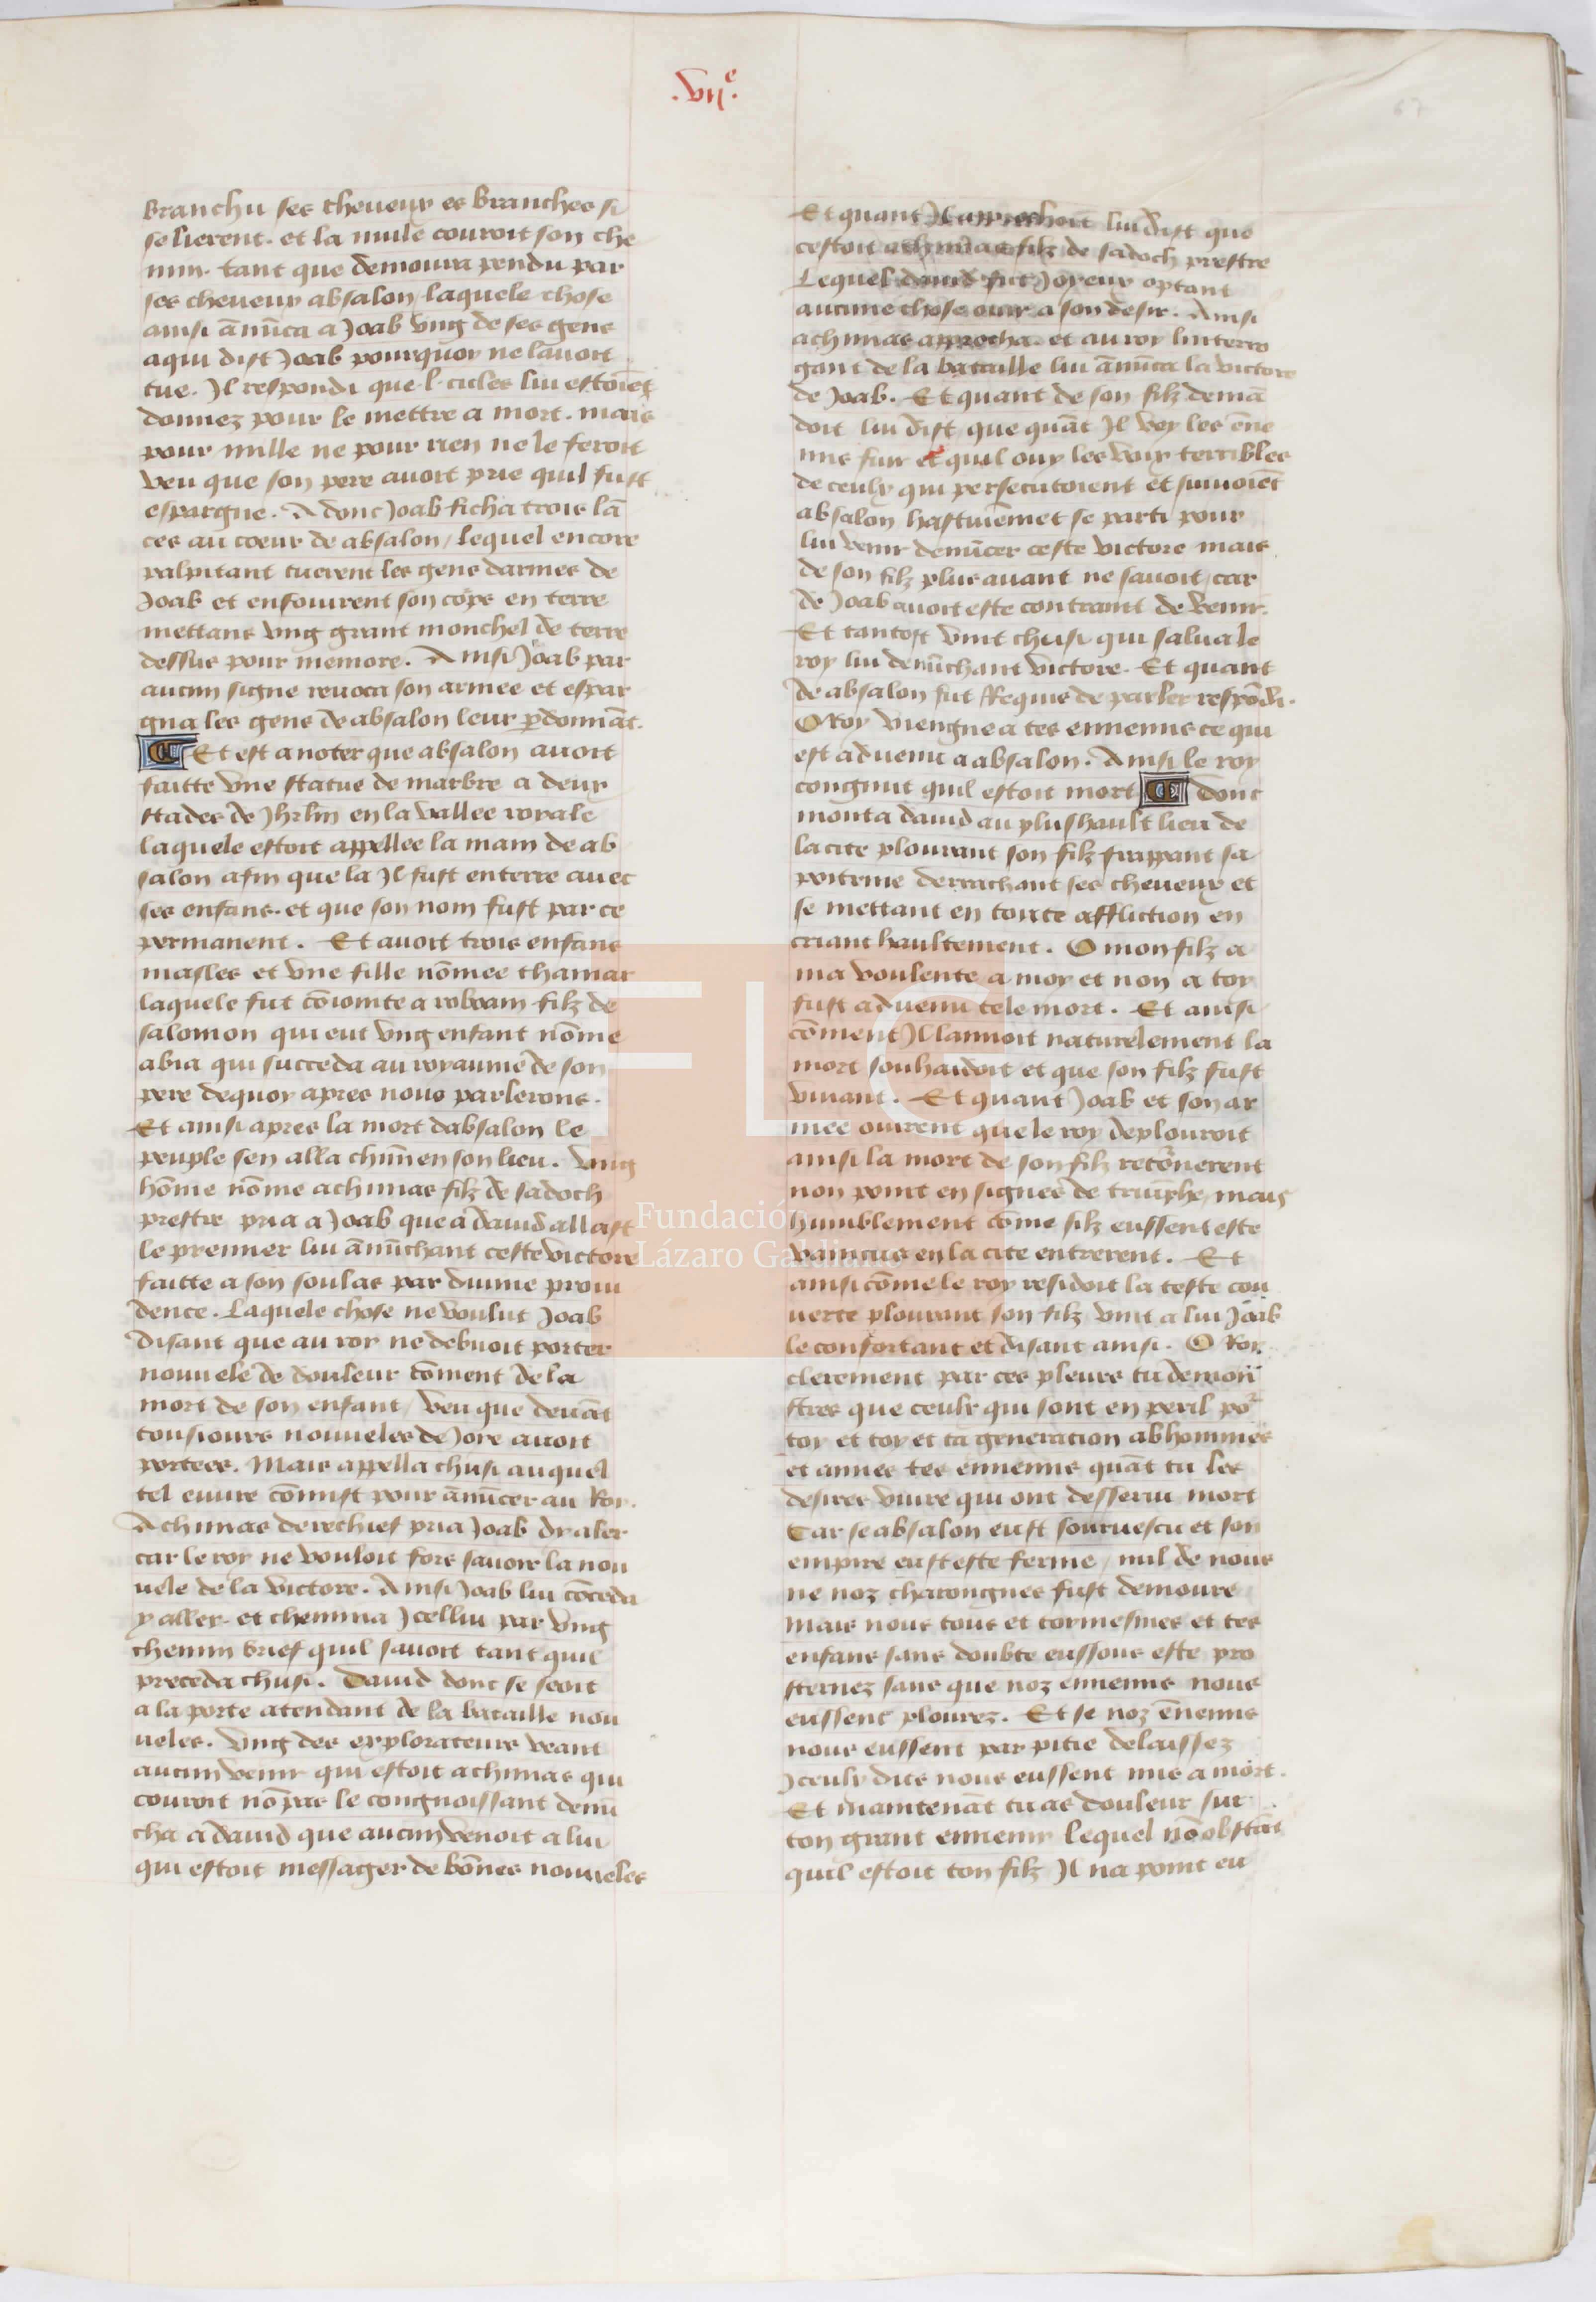 .vije.
67
branchu ses cheueux es branches si
se lierent. et la mule couroit son che
min. tant que demoura pendu par
ses cheueux absalon laquele chose
ainsi ānūca a Joab vng de ses gens
a qui dist Joab pourquoy ne lauoit
tue. Jl respondi que .l. cicles lui estoiēt
donnez pour le mettre a mort. mais
pour mille ne pour rien ne le feroit
veu que son pere auoit prie quil fust
espargne. Adonc Joab ficha trois lā
ces au coeur de absalon / lequel encore
palpitant tuerent les gens darmes de
Joab et enfouirent son corps en terre
mettans vng grant monchel de terre
dessus pour memore. Ainsi Joab par
aucun signe reuoca son armee et espar
gna les gens de absalon leur pdonnāt.
Et est a noter que absalon auoit
faitte vne statue de marbre a deux
stades de Jhrlm en la vallee royale
laquele estoit appellee la main de ab
salon afin que la Jl fust enterre auec
ses enfans. et que son nom fust par ce
permanent. Et auoit trois enfans
masles et vne fille nōmee thamar
laquele fut cōiointe a roboam filz de
salomon qui eut vng enfant nōme
abia qui succeda au royaume de son
pere dequoy apres nous parlerons.
Et ainsi apres la mort dabsalon le
peuple sen alla chūn en son lieu. Vng
hōme nōme achimas filz de sadoch
prestre pria a Joab que a dauid allast
le premier lui ānūchant ceste victore
faitte a son soulas par diuine proui
dence. Laquele chose ne voulut Joab
disant que au roy ne debuoit porter
nouuele de douleur cōment de la
mort de son enfant / veu que deuāt
tousiours nouueles de Joye auoit
portees. Mais appella chusi auquel
tel euure cōmist pour ānūcer au Roy.
Achimas derechief pria Joab dy aler
car le roy ne vouloit fors sauoir la nou
uele de la victore. Ainsi Joab lui cōceda
y aller. et chemina Jcellui par vng
chemin brief quil sauoit tant quil
preceda chusi. Dauid donc se seoit
a la porte atendant de la bataille nou
ueles. Vng des explorateurs veant
aucun venir qui estoit achimas qui
couroit nō pas le congnoissant denū
cha a dauid que aucun venoit a lui
qui estoit messager de bōnes nouueles
Et quant Jl approchoit lui dist que
cestoit achimas filz de sadoch prestre
Lequel dauid fut Joyeux optant
aucune chose ouir a son desir. Ainsi
achimas approcha. et au roy linterro
gant de la bataille lui ānūca la victore
de Joab. Et quant de son filz demā
doit lui dist que quāt Jl vey les ēne
mis fuir et quil ouy les voix terribles
de ceulx qui persecutoient et suiuoiēt
absalon hastiuemēt se parti pour
lui venir denūcer ceste victore mais
de son filz plus auant ne sauoit / car
de Joab auoit este contraint de venir.
Et tantost vint chusi qui salua le
roy lui denūchant victore. Et quant
de absalon fut Requis de parler respōdi.
O Roy viengne a tes ennemis ce qui
est aduenu a absalon. Ainsi le roy
congnut quil estoit mort donc
monta dauid au plus hault lieu de
la cite plourant son filz frappant sa
poitrine derrachant ses cheueux et
se mettant en toute affliction en
criant haultement. O mon filz a
ma voulente a moy et non a toy
fust aduenu tele mort. Et ainsi
cōment Jl lamoit naturelement la
mort souhaidoit et que son filz fust
viuant. Et quant Joab et son ar
mee ouirent que le roy deplouroit
ainsi la mort de son filz retōnerent
non point en signes de triūphe / mais
humblement cōme silz eussent este
vaincus en la cite entrerent. Et
ainsi cōme le roy residoit la teste cou
uerte plourant son filz vint a lui Joab
le confortant et disant ainsi. O Roy
clerement par ces pleurs tu demon
stres que ceulx qui sont en peril por
toy et toy et ta generacion abhommes
et aimes tes ennemis quāt tu les
desires viure qui ont desserui mort
Car se absalon eust souruescu et son
empire eust este ferme / nul de nous
ne noz charongnes fust demoure
Mais nous tous et toymesmes et tes
enfans sans doubte eussons este pro
sternez sans que noz ennemis nous
eussent plourez. Et se noz ēnemis
nous eussent par pitie delaissez
Jceulx dits nous eussent mis a mort.
Et maintenāt tu as douleur sur
ton grant ennemy lequel nō obstāt
quil estoit ton filz Jl na point eu
Fundación
Lázaro Galdiano